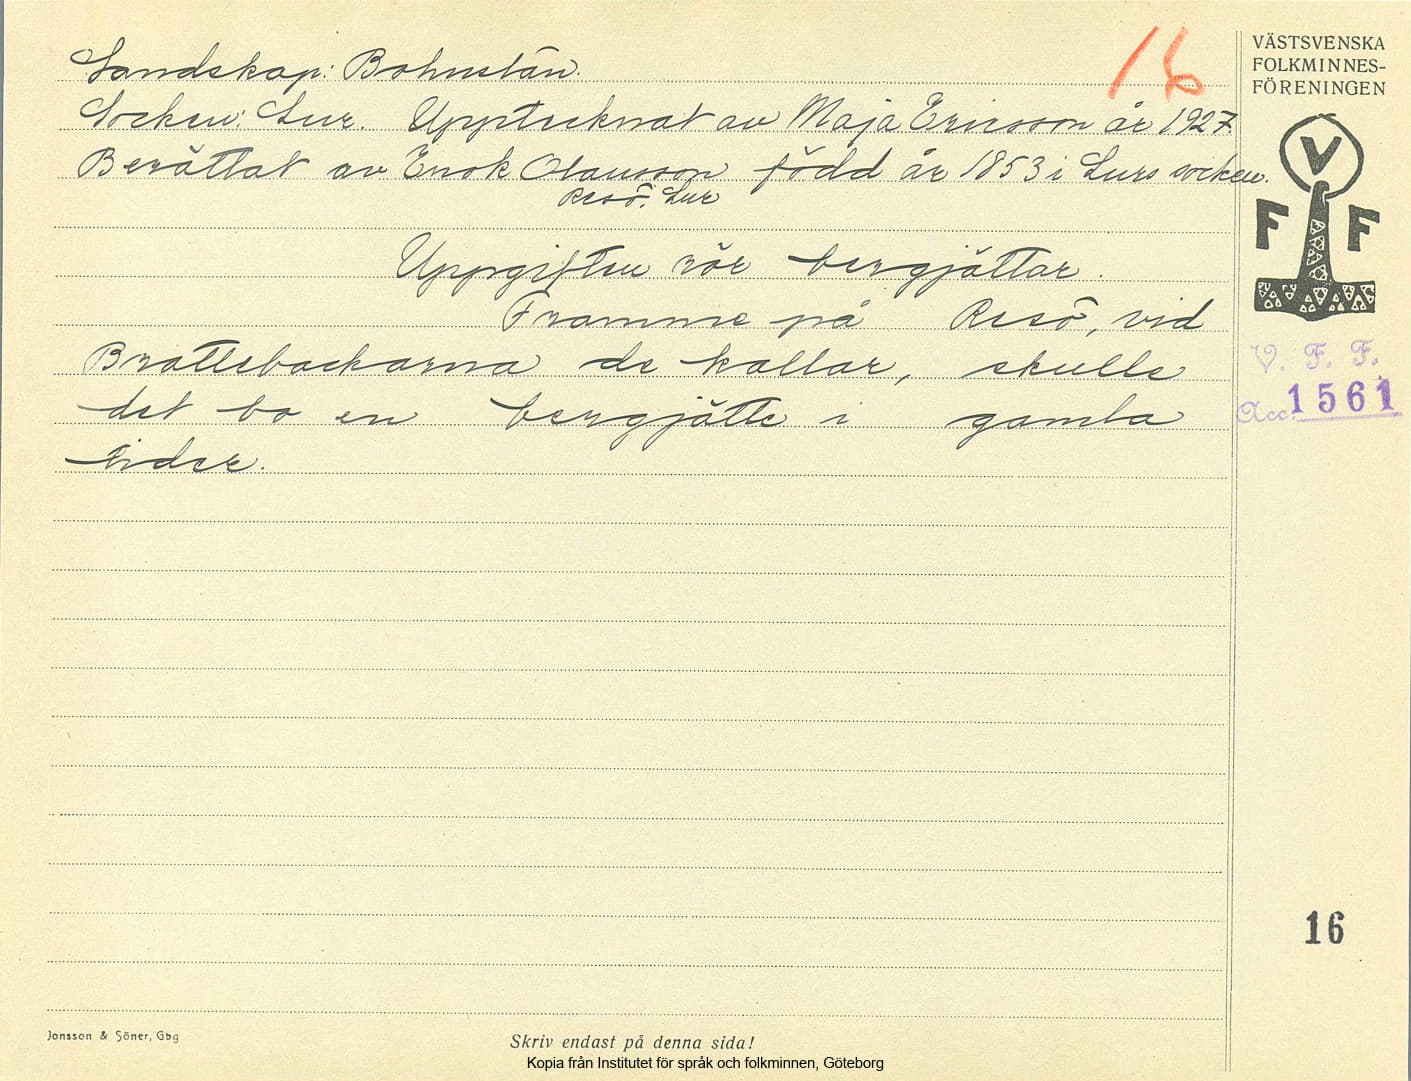 16
VÄSTSVENSKA
FOLKMINNES-
FÖRENINGEN
Landskap: Bohuslän.
Socken: Lur. Upptecknat av Maja Ericsson år 1927.
Berättat av Enok Olausson född år 1853 i Lurs socken.
Resö, Lur
V
F F
Uppgiften rör bergjättar.
Framme på Resö, vid
Brattebackarna de kallar, skulle
det bo en bergjätte i gamla
tider.
V. F. F.
Acc. 1561
16
Jonsson & Söner, Gbg
Skriv endast på denna sida!
Kopia från Institutet för språk och folkminnen, Göteborg